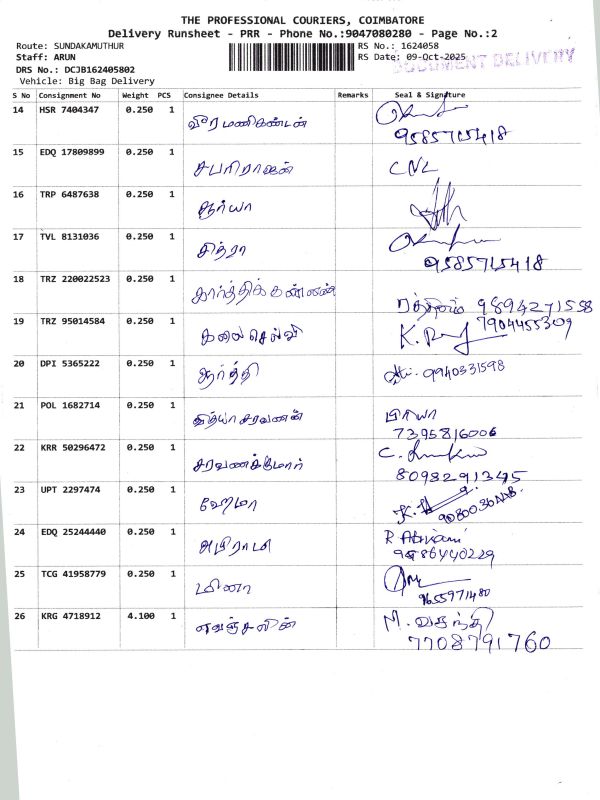 THE PROFESSIONAL COURIERS, COIMBATORE
Delivery Runsheet - PRR - Phone No.:9047080280 - Page No.:2
Route: SUNDAKAMUTHUR RS No.: 1624058
Staff: ARUN RS Date: 09-Oct-2025
DOCUMENT DELIVERY
DRS No.: DCJB162405802
Vehicle: Big Bag Delivery
S No Consignment No Weight PCS Consignee Details Remarks Seal & Signature
14 HSR 7404347 0.250 1 வீரமணிகண்டன்
9585715418
15 EDQ 17809899 0.250 1 சபரிராஜன் CNL
16 TRP 6487638 0.250 1 சூர்யா
17 TVL 8131036 0.250 1 சித்ரா
9585715418
18 TRZ 220022523 0.250 1 கார்த்திக் கண்ணன்
9894271558
19 TRZ 95014584 0.250 1 கலைசெல்வி 7904455309
20 DPI 5365222 0.250 1 ஆர்த்தி 9940331598
21 POL 1682714 0.250 1 வித்யா சரவணன் பிரியா
7395816006
22 KRR 50296472 0.250 1 சரவணக்குமார்
8098291345
23 UPT 2297474 0.250 1 ஹேமா
24 EDQ 25244440 0.250 1 அபிராமி R Abirami
9586440229
25 TCG 41958779 0.250 1 மீனா
9655971480
26 KRG 4718912 4.100 1 ஏஞ்சலின் M. வசந்தி
7708791760